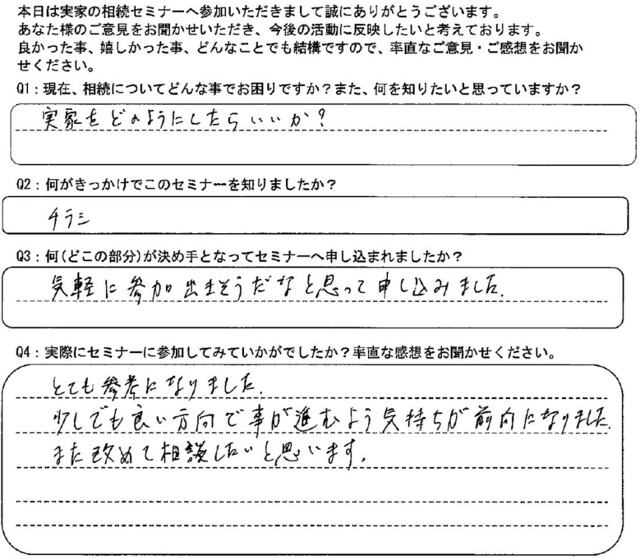 本日は実家の相続セミナーへ参加いただきまして誠にありがとうございます。
あなた様のご意見をお聞かせいただき、今後の活動に反映したいと考えております。
良かった事、嬉しかった事、どんなことでも結構ですので、率直なご意見・ご感想をお聞か
せください。
Q1：現在、相続についてどんな事でお困りですか？また、何を知りたいと思っていますか？
実家をどのようにしたらいいか？
Q2：何がきっかけでこのセミナーを知りましたか？
チラシ
Q3：何(どこの部分)が決め手となってセミナーへ申し込まれましたか？
気軽に参加出来そうだなと思って申し込みました.
Q4：実際にセミナーに参加してみていかがでしたか？率直な感想をお聞かせください。
とても参考になりました.
少しでも良い方向で事が進むよう気持ちが前向になりました.
また改めて相談したいと思います.